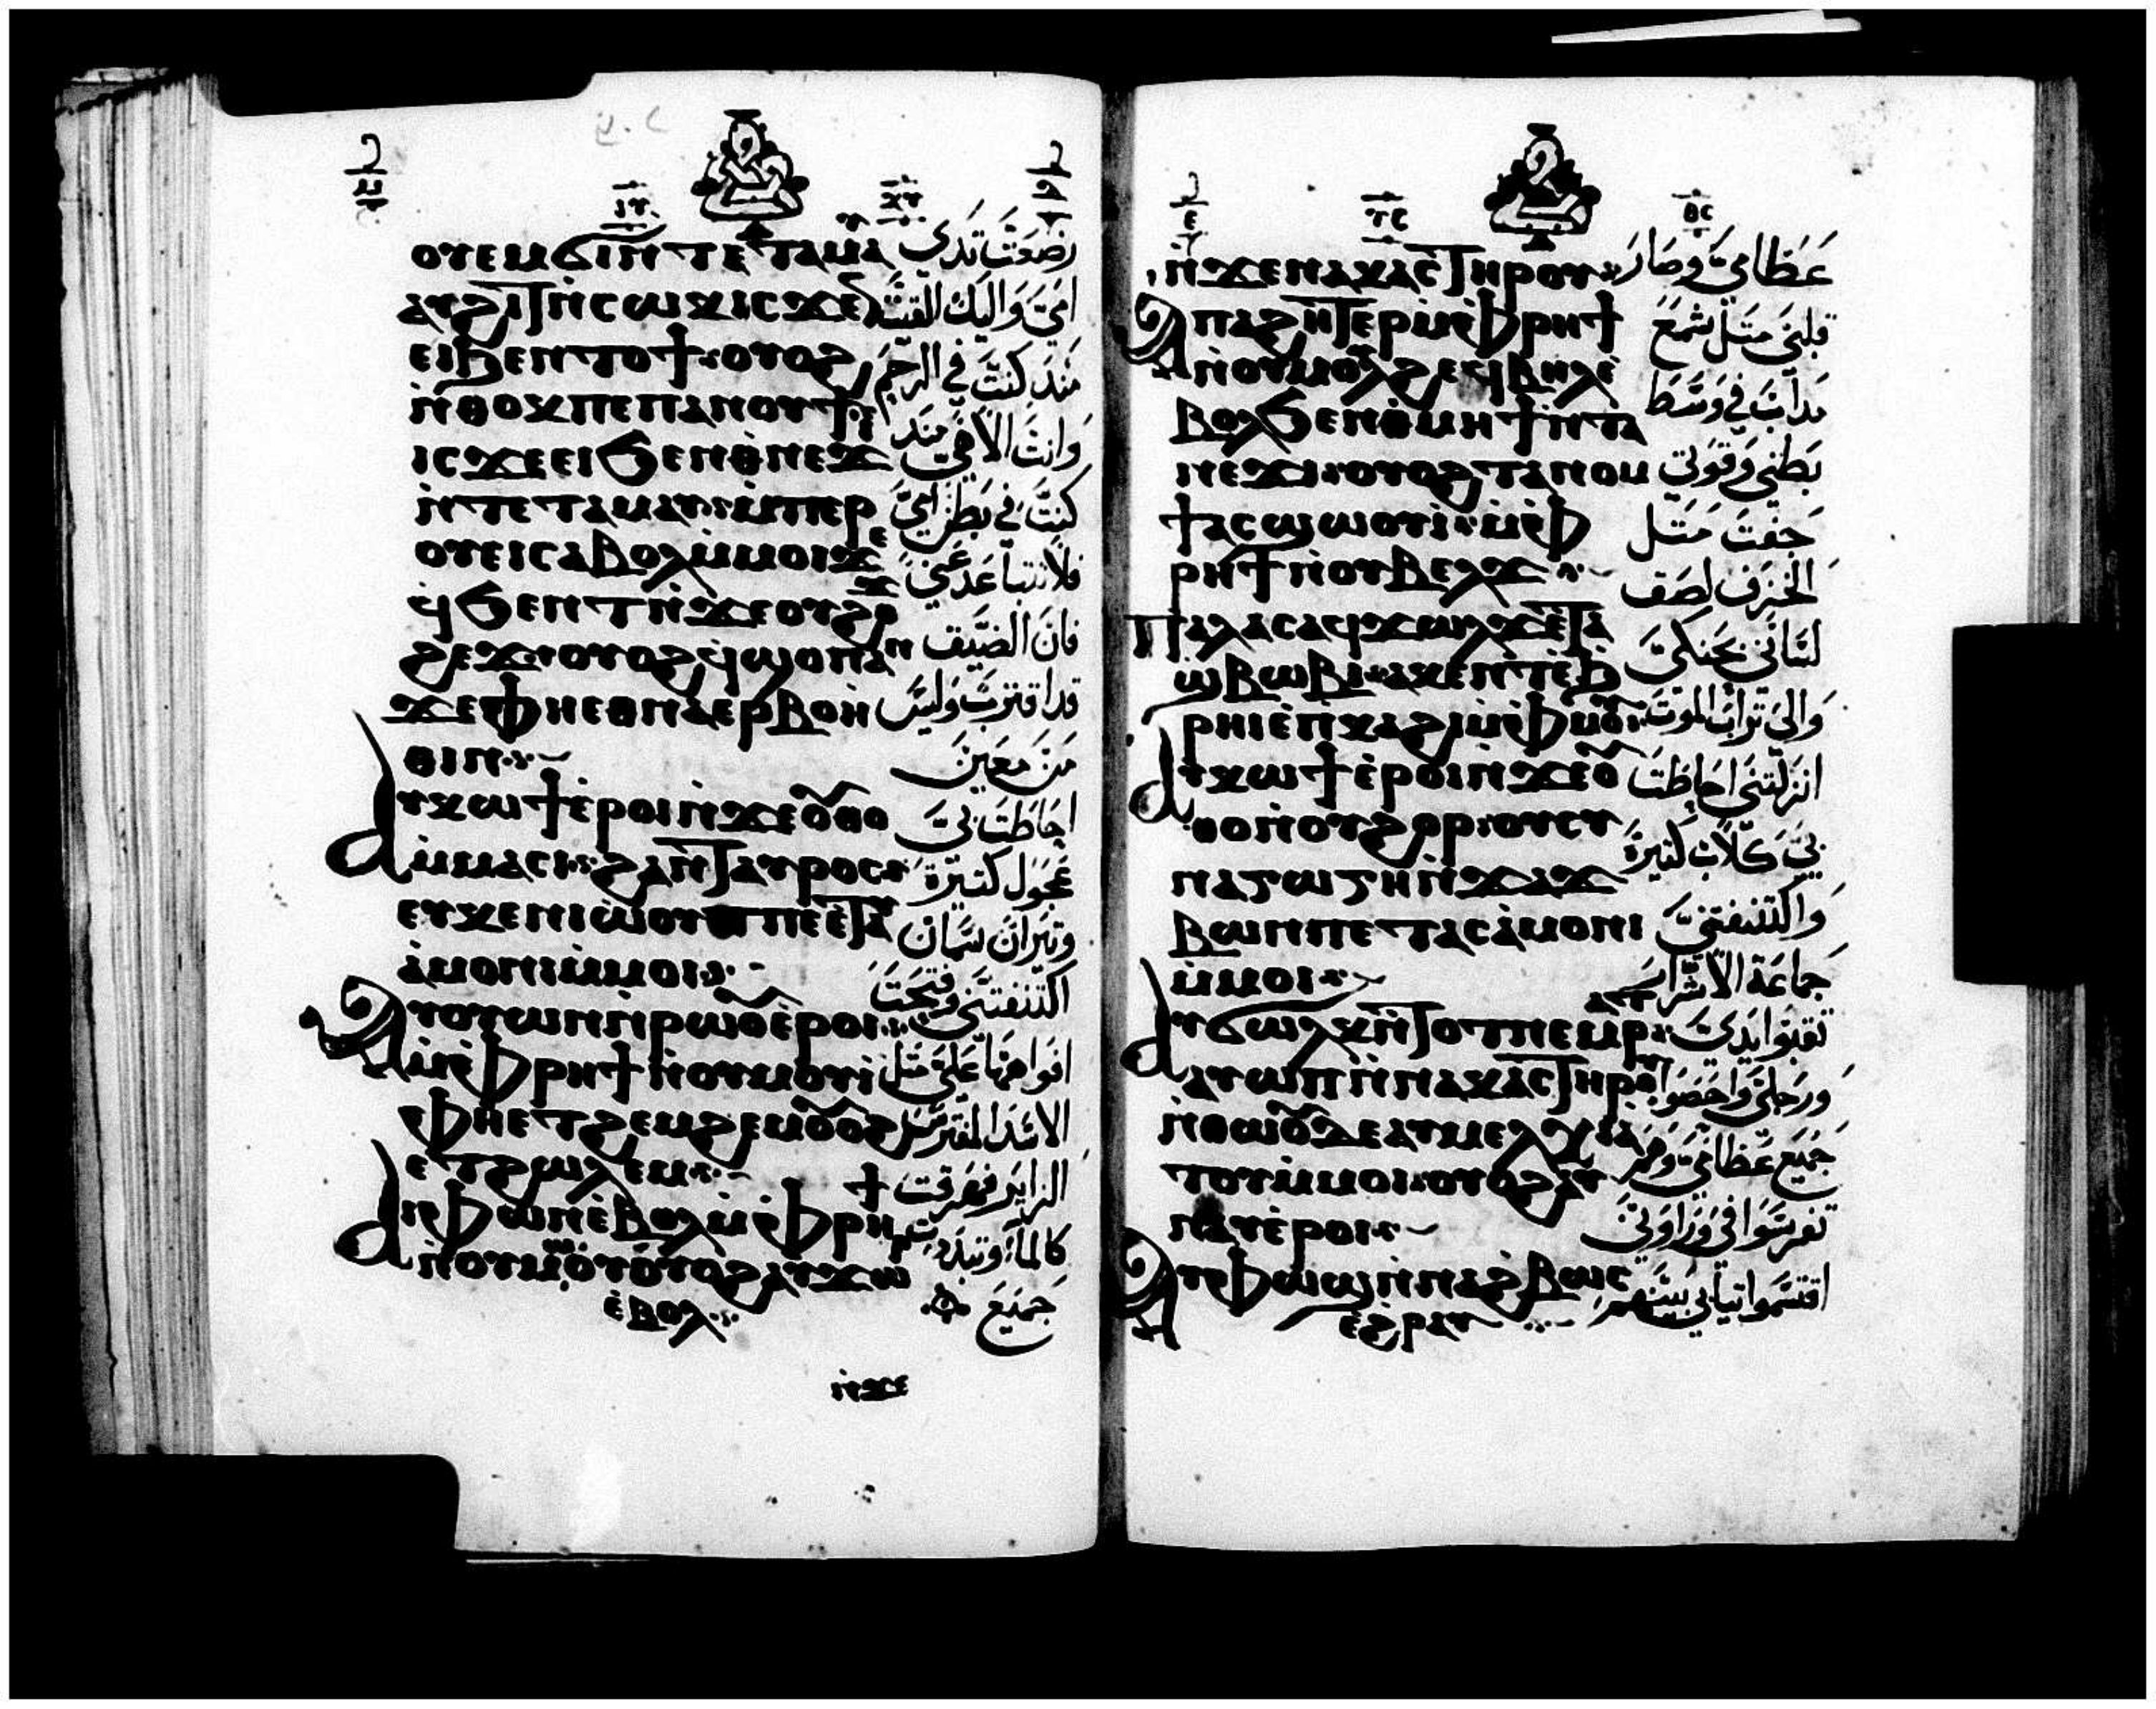 ⲟⲩⲉⲙϭⲓⲛⲧⲉⲧⲁⲙⲁⲩ
ⲁⲩϩⲓⲧⲛ̀ⲥⲱⲭⲓⲥϫⲉ
ⲉⲓϧⲉⲛⲧⲟϯ ⲟⲩⲟϩ
ⲛ̀ⲑⲟⲭⲡⲉⲡⲁⲛⲟⲩϯ
ⲓⲥϫⲉⲉⲓϧⲉⲛⲑ̀ⲛⲉϫⲓ
ⲛ̀ⲧⲉⲧⲁⲙⲁⲩ ⲙ̀ⲡⲉⲣ
ⲟⲩⲉⲓⲥⲁⲃⲟⲗⲙ̀ⲙⲟⲓϫⲉ
ϥϧⲉⲛⲧⲛ̀ϫⲉⲟⲩϩⲟ
ϩⲉϫ ⲟⲩⲟϩϥ̀ϣⲟⲡⲁⲛ
ϫⲉⲫⲏⲉⲑⲛⲁⲉⲣⲃⲟⲏ̀
ⲑⲓⲛ
ⲁⲩⲭⲱϯⲉ̀ⲣⲟⲓⲛ̀ϫⲉⲟ̅ⲑⲟ
ⲙ̀ⲙⲁⲥⲓ ϩⲁⲛⲧⲁⲩⲣⲟⲥ
ⲉⲩⲕⲉⲛⲓⲱⲟⲩⲡⲉⲉ̀ⲧⲁⲩ
ⲁ̀ⲙⲟⲛⲓⲙ̀ⲙⲟⲓ
ⲁⲩⲟⲩⲱⲛⲛ̀ⲣⲱⲟ̅ⲉ̀ⲣⲟⲓ
ⲙ̀ⲫⲣⲏϯⲛ̀ⲟⲩⲙⲟⲩⲓ
ⲫⲏⲉⲧϩⲉⲙϩⲉⲙⲟ̅ⲟϩ
ⲉⲧϩⲱⲗⲉⲙ
ⲁⲩⲫⲱⲛⲉ̀ⲃⲟⲗⲙ̀ⲫⲣⲏϯ
ⲛ̀ⲟⲩⲙⲱⲟⲩⲟⲩⲟϩⲁⲩϫⲱⲣ
ⲉ̀ⲃⲟⲗ
ⲛ̀ϫⲉ
رضعت ثدي
امي واليك القيت
منذ كنت في الرحم
وانت الاهي منذ
كنت في بطن امي
فلا تتباعد عني
فان الضيق
قد اقترب وليس
من معين
احاطت بي
عجول كتيرة
وتيران سمان
اكتنفتني وفتحت
افواهها علي مثل
الاسد المفترس
الزاير فهرقت
كالماء وتبددت
جميع
ⲛ̀ϫⲉⲛⲁⲕⲁⲥⲧⲏⲣⲟⲩ
ⲁⲡⲁϩⲏⲧⲉⲣⲙ̀ⲫⲣⲏϯ
ⲛ̀ⲟⲩⲙⲟⲩⲗϩⲉϥⲃⲏⲗⲉ̀
ⲃⲟⲗϧⲉⲛⲑ̀ⲙⲏϯⲛ̀ⲧⲁ
ⲛⲉϫⲓ ⲟⲩⲟϩⲧⲁⲛⲟⲙ
ϯⲁⲥϣⲱⲟⲩⲓ ⲙ̀ⲫ
ⲣⲏϯⲛ̀ⲟⲩⲃⲉⲗϫ
ⲡⲁⲗⲁⲥⲁϥϫⲱⲗϫⲉ̀ⲧⲁ
ϣⲃⲱⲃⲓ ⲁⲕⲉⲛⲧⲉ̀ϧ
ⲣⲏⲓⲉ̀ⲡⲕⲁϩⲓⲙ̀ⲫⲙⲟ̅
ⲁⲩⲭⲱϯⲉ̀ⲣⲟⲓⲛ̀ϫⲉⲟ̅
ⲑⲟⲛ̀ⲟⲩϩⲟⲣ ⲟⲩⲥⲩ
ⲛⲁⲅⲱⲅⲏⲛ̀ϫⲁϫ
ⲃⲱⲛⲡⲉⲧⲁⲥⲁ̀ⲙⲟⲛⲓ
ⲙ̀ⲙⲟⲓ
ⲁⲩϭⲱⲗⲕⲛ̀ⲧⲟⲧⲛⲉⲙⲣⲁⲧ
ⲁⲩⲱⲡⲛ̀ⲛⲁⲕⲁⲥⲧⲏⲣⲟ̅
ⲛ̀ⲑⲱⲟ̅ⲇⲉⲁⲩⲙⲉⲗⲕⲓⲁ
ⲧⲟⲩⲙ̀ⲙⲟⲓ ⲟⲩⲟϩⲁⲩ
ⲛⲁⲩⲉ̀ⲣⲟⲓ
ⲁⲩⲫⲱϣⲛ̀ⲛⲁϩⲃⲱⲥ
ⲉϩⲣⲁⲩ
عظامي وصار
قلبي متل شمع
يداب في وسط
بطني وقوتي
جفت متل
الخزف لصق
لساني بحنكي
والى تراب الموت
انزلتني احاطت
بي كلاب كتيرة
واكتنفتني
جماعة الاشرار
تقبوا يدي
ورجلي واحصوا
جميع عظامي وهم
تفرسوا في وراوني
اقتسموا تيابي بينهم